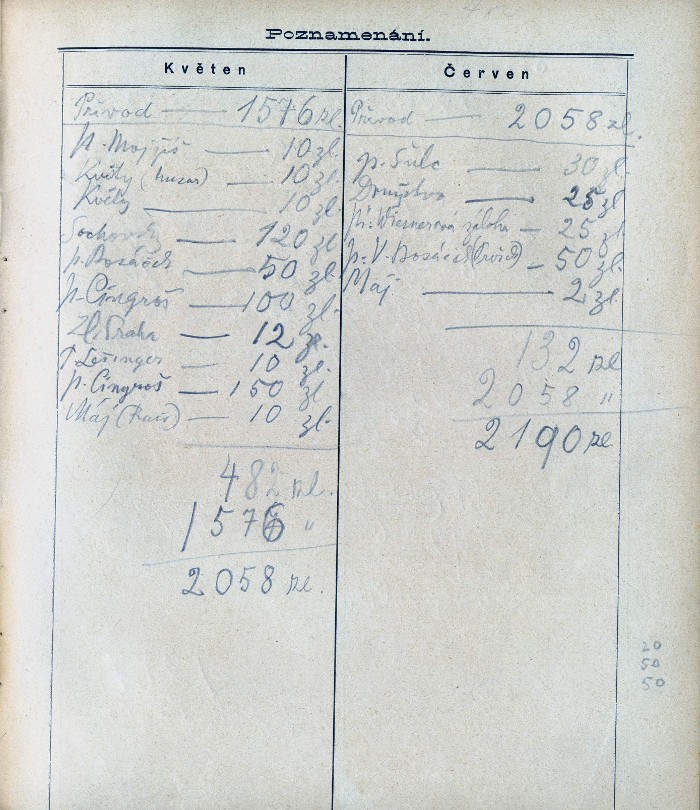 Poznamenání.
Květen
Přívod — 1576 zl.
p. Mojžíš — 10 zl.
Květy (huzar) — 10 zl.
Květy — 10 zl.
Sochovský — 120 zl
p. Bosáček — 50 zl.
p. Cingroš — 100 zl.
Zl. Praha — 12 zl.
Lešinger — 10 zl.
p. Cingroš — 150 zl
Máj — 10 zl.
482 zl.
1576 "
2058 zl.
Červen
Přívod — 2058 zl.
p. Šulc — 30 zl
Družstvo — 25 zl
Wiesnerová záloha — 25 zl
p. V. — 50 zl.
Máj — 2 zl.
132 zl
2058 "
2190 zl.
20
50
50